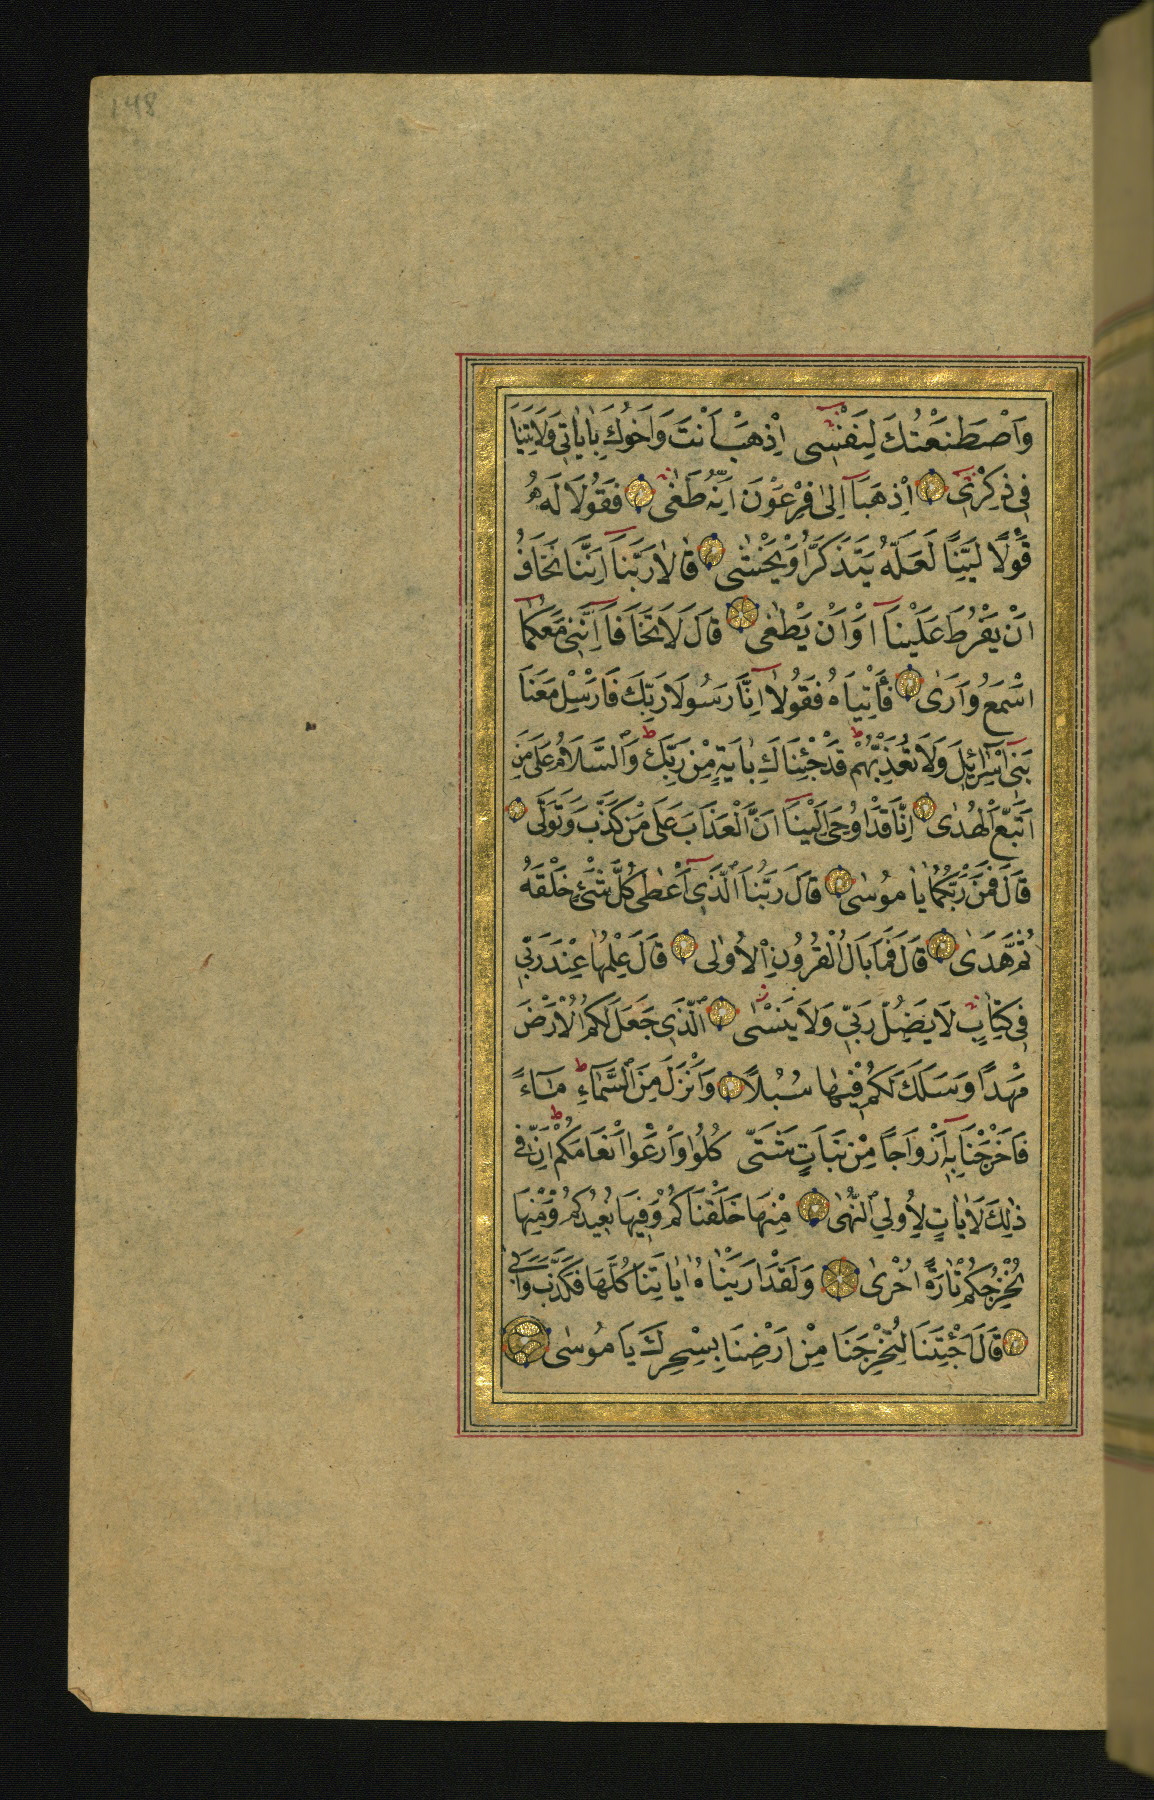 148
وَاصْطَنَعْتُكَ لِنَفْسِى اِذْهَبْ اَنْتَ وَاَخُوكَ بِاٰيَاتِى وَلَا تَنِيَا
فِى ذِكْرِى اِذْهَبَا اِلٰى فِرْعَوْنَ اِنَّهُ طَغٰى فَقُولَا لَهُ
قَوْلًا لَيِّنًا لَعَلَّهُ يَتَذَكَّرُ اَوْ يَخْشٰى قَالَا رَبَّنَا اِنَّنَا نَخَافُ
اَنْ يَفْرُطَ عَلَيْنَا اَوْ اَنْ يَطْغٰى قَالَ لَا تَخَافَا اِنَّنِى مَعَكُمَا
اَسْمَعُ وَاَرٰى فَأْتِيَاهُ فَقُولَا اِنَّا رَسُولَا رَبِّكَ فَاَرْسِلْ مَعَنَا
بَنِى اِسْرَائِلَ وَلَا تُعَذِّبْهُمْ قَدْ جِئْنَاكَ بِاٰيَةٍ مِنْ رَبِّكَ وَالسَّلَامُ عَلٰى مَنِ
اتَّبَعَ الْهُدٰى اِنَّا قَدْ اُوحِىَ اِلَيْنَا اَنَّ الْعَذَابَ عَلٰى مَنْ كَذَّبَ وَتَوَلّٰى
قَالَ فَمَنْ رَبُّكُمَا يَا مُوسٰى قَالَ رَبُّنَا الَّذِى اَعْطٰى كُلَّ شَىْءٍ خَلْقَهُ
ثُمَّ هَدٰى قَالَ فَمَا بَالُ الْقُرُونِ الْاُولٰى قَالَ عِلْمُهَا عِنْدَ رَبِّى
فِى كِتَابٍ لَا يَضِلُّ رَبِّى وَلَا يَنْسٰى اَلَّذِى جَعَلَ لَكُمُ الْاَرْضَ
مَهْدًا وَسَلَكَ لَكُمْ فِيهَا سُبُلًا وَاَنْزَلَ مِنَ السَّمَاءِ مَاءً
فَاَخْرَجْنَا بِهِ اَزْوَاجًا مِنْ نَبَاتٍ شَتّٰى كُلُوا وَارْعَوْا اَنْعَامَكُمْ اِنَّ فِى
ذٰلِكَ لَاٰيَاتٍ لِاُولِى النُّهٰى مِنْهَا خَلَقْنَاكُمْ وَفِيهَا نُعِيدُكُمْ وَمِنْهَا
نُخْرِجُكُمْ تَارَةً اُخْرٰى وَلَقَدْ اَرَيْنَاهُ اٰيَاتِنَا كُلَّهَا فَكَذَّبَ وَاَبٰى
قَالَ اَجِئْتَنَا لِتُخْرِجَنَا مِنْ اَرْضِنَا بِسِحْرِكَ يَا مُوسٰى